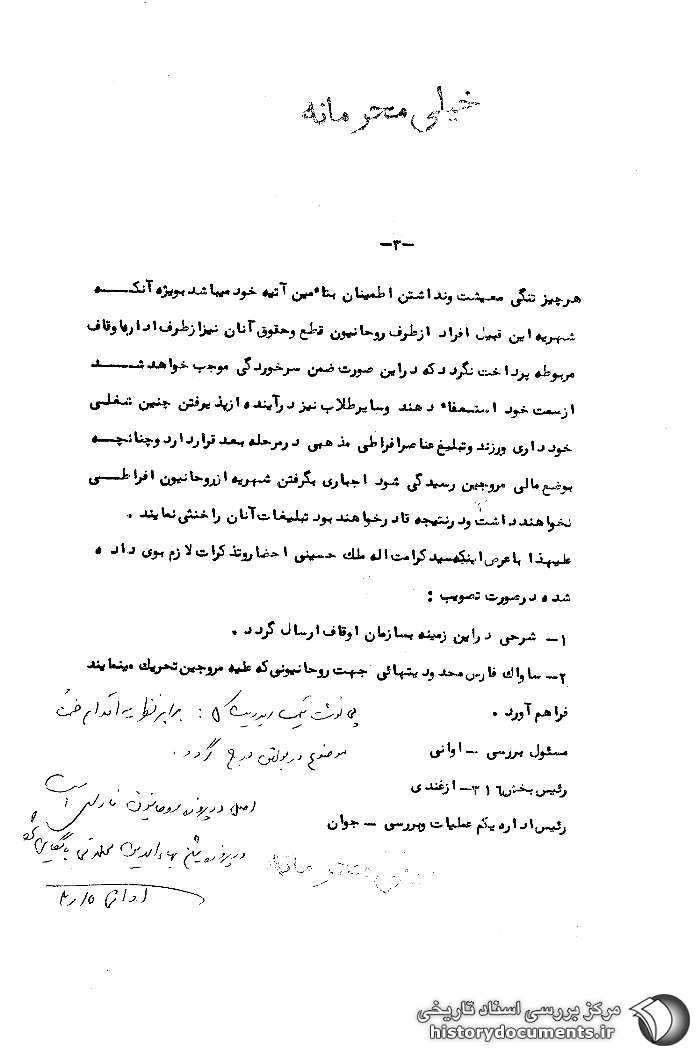 خیلی محرمانه
-۳-
هرچیز تنگی معیشت ونداشتن اطمینان بتأمین آتیه خود میباشد بویژه آنکــــه
شهریه این قبیل افراد ازطرف روحانیون قطع وحقوق آنان نیزازطرف ادارهاوقاف
مربوطه پرداخت نگردد که دراین صورت ضمن سرخوردگی موجب خواهد شـــد
ازسمت خود استعفاء دهند وسایرطلاب نیز درآینده ازپذیرفتن چنین شغلــی
خودداری ورزند وتبلیغ عناصرافراطی مذهبی درمرحله بعد قراردارد وچنانچــه
بوضع مالی مروجین رسیدگی شود اجباری بگرفتن شهریه ازروحانیون افراطــی
نخواهند داشت ودرنتیجه قادرخواهند بود تبلیغات آنان راخنثی نمایند .
علیهذا باعرض اینکه سید کرامت اله ملک حسینی احضاروتذکرات لازم بوی داده
شده درصورت تصویب :
۱- شرحی دراین زمینه بسازمان اوقاف ارسال گردد .
۲- ساواک فارس محدودیتهائی جهت روحانیونی که علیه مروجین تحریک مینمایند
فراهم آورد .
پی نوشت تیمسار مدیریت کل : برابر نظریه اقدام ضمناً
موضوع در بولتن درج گردد .
مسئول بررسی - اوانی
رئیس بخش ۳۱۶ - ازغندی
رئیس اداره یکم عملیات وبررسی - جوان
اصل در پرونده روحانیون فارس است
در پرونده شیخ بهاءالدین محلاتی بایگانی شود
خیلی محرمانه
مرکز بررسی اسناد تاریخی
historydocuments.ir